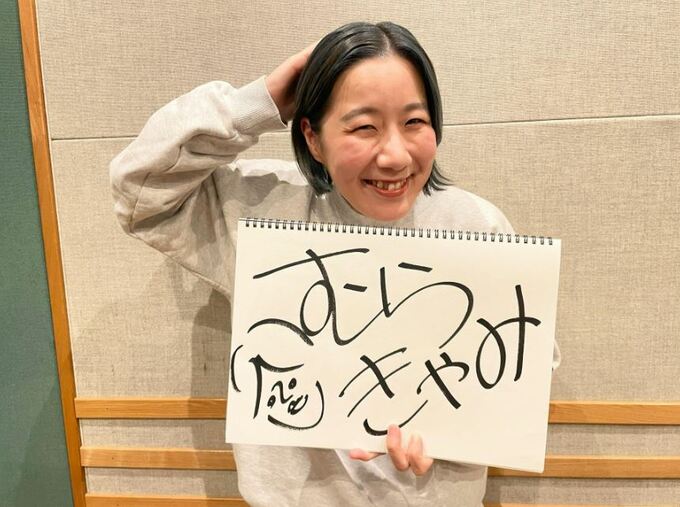 むら
きゃみ